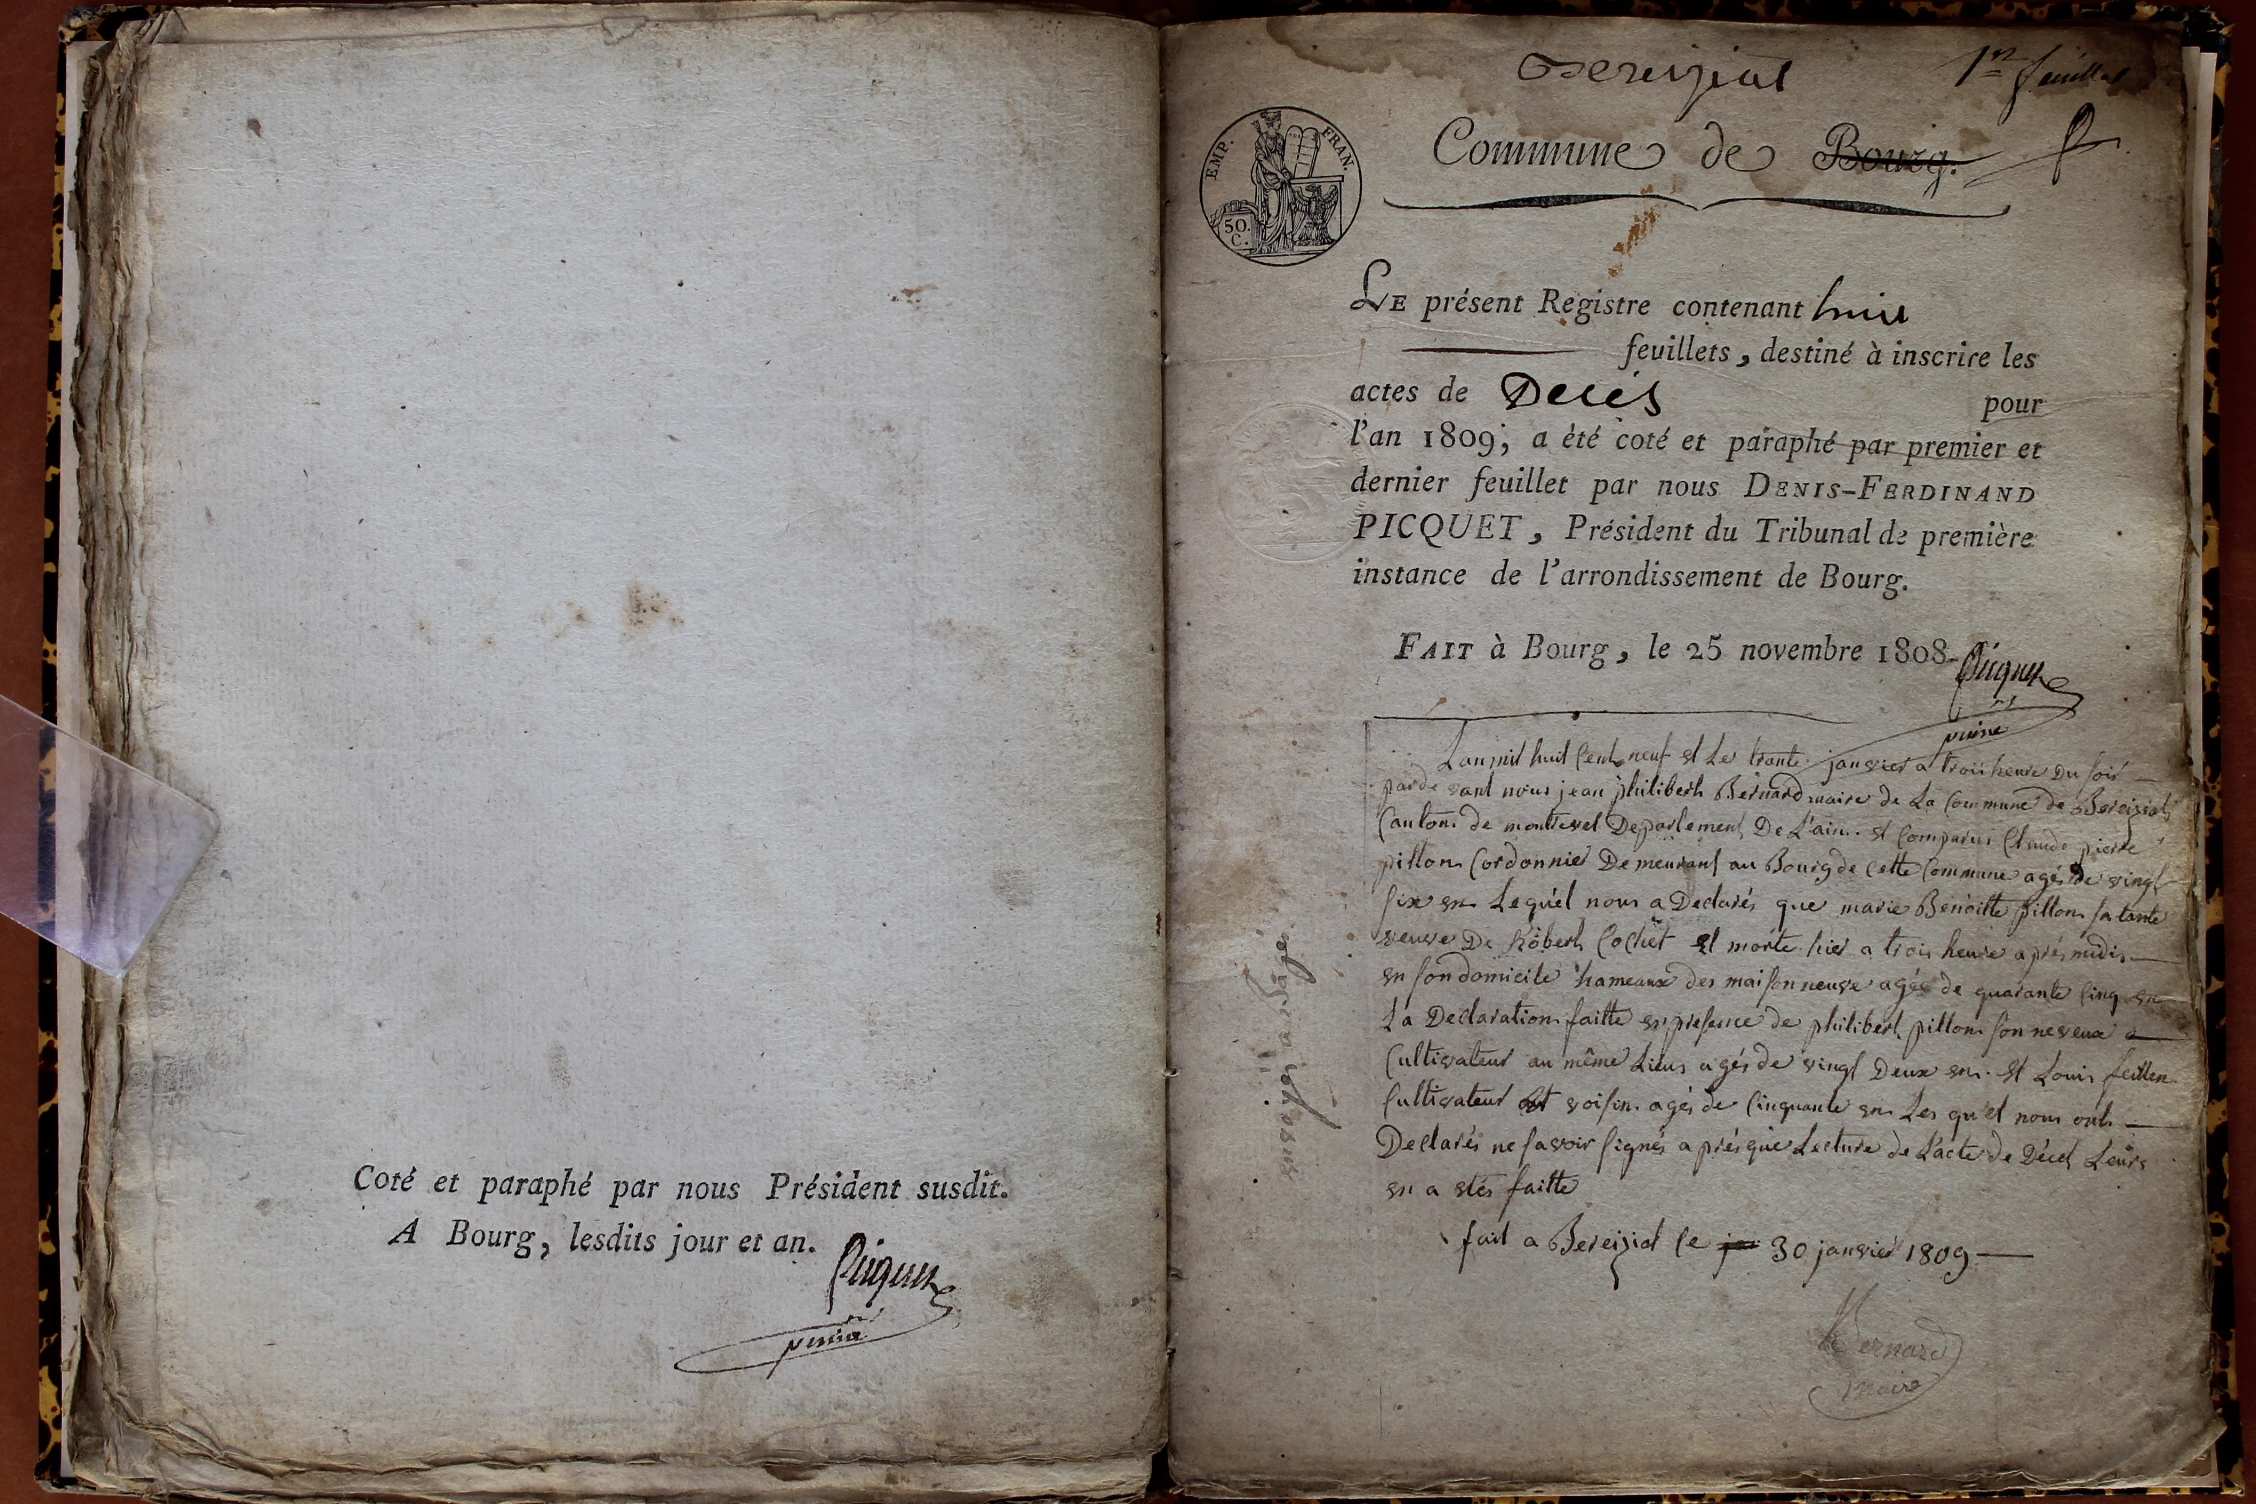 Coté et paraphé par nous Président susdit.
A Bourg, lesdits jour et an.
Picquet
Bereiziat
1er feuillet
EMP. FRAN.
50.
C.
Commune de Bourg.
LE présent Registre contenant huit
feuillets, destiné à inscrire les
actes de Décés pour
l'an 1809, a été coté et paraphé par premier et
dernier feuillet par nous DENIS-FERDINAND
PICQUET, Président du Tribunal de première
instance de l'arrondissement de Bourg.
FAIT à Bourg, le 25 novembre 1808.
Picquet
Lan mil huit Cent neuf et Le trante janvier a trois heure Du soir
par de vant nous jean philibert Bernard maire de La Commune de Bereiziat
Canton de montrevel Departement De L'ain. et Comparus Claude pierre
pillon Cordonnier Demeurant au Bourg de Cette Commune agés de vingt
six en Lequ'el nous a Declarés que marie Benoitte pillon sa tante
veuve De Robert Cochet et morte hier a trois heure aprés midis
en son domicile hameaux des maison neuve agés de quarante Cinq en
La Declaration faitte en presence de philibert pillon son neveux
Cultivateur au même Lieux agés de vingt Deux en. et Louis feillen
Cultivateur voisin agés de Cinquante en Les qu'el nous ont
Declarés ne savoir signés aprés que Lecture de L'acte de Décet Leurs
en a etés faitte
fait a Bereiziat Ce 30 janvier 1809
Bernard
maire